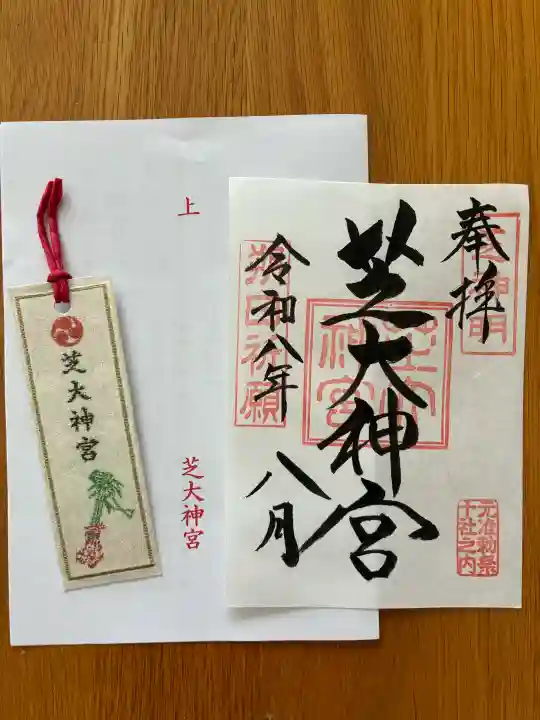 奉拝
芝大神宮
令和八年
八月
朔日祈願
芝神明
芝大神宮
元准勅祭
十社之内
上
芝大神宮
芝大神宮